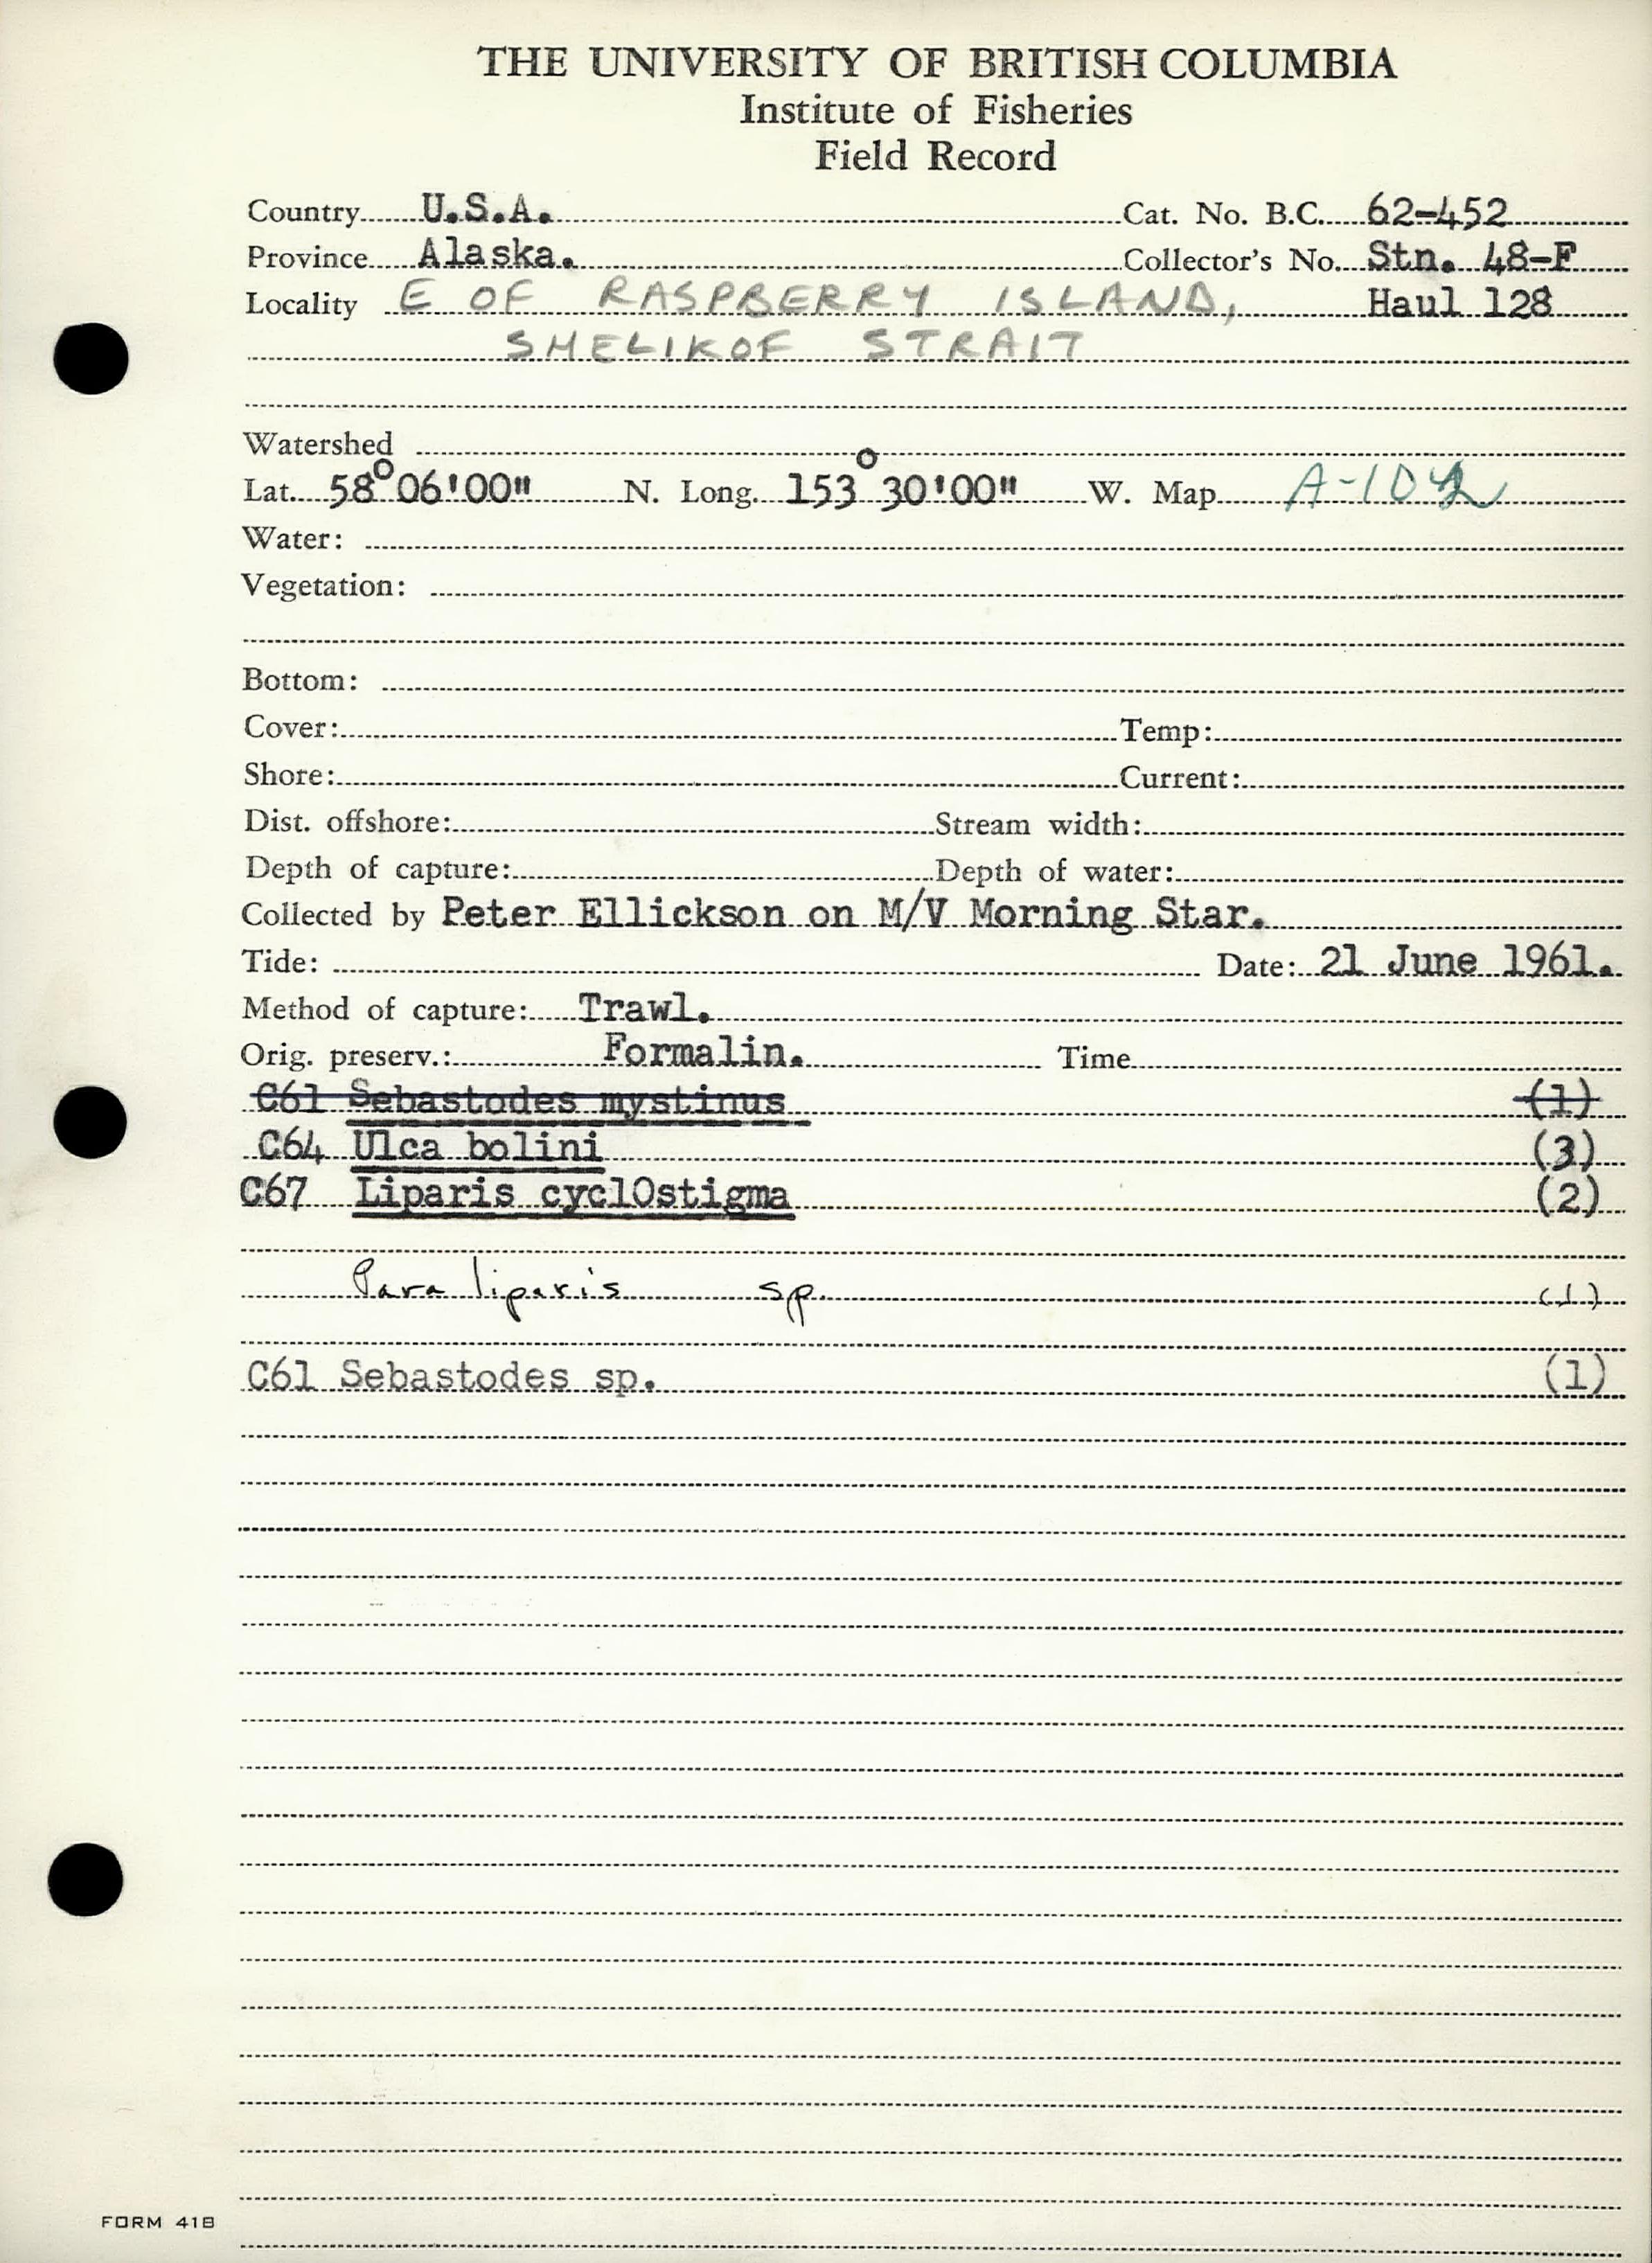 THE UNIVERSITY OF BRITISH COLUMBIA
Institute of Fisheries
Field Record
Country U.S.A. Cat. No. B.C. 62-452
Province Alaska. Collector's No. Stn. 48-F
Locality E OF RASPBERRY ISLAND, Haul 128
SHELIKOF STRAIT
Watershed
Lat. 58°06'00" N. Long. 153°30'00" W. Map A-102
Water:
Vegetation:
Bottom:
Cover: Temp:
Shore: Current:
Dist. offshore: Stream width:
Depth of capture: Depth of water:
Collected by Peter Ellickson on M/V Morning Star.
Tide: Date: 21 June 1961.
Method of capture: Trawl.
Orig. preserv.: Formalin. Time
C61 Sebastodes mystinus (1)
C64 Ulca bolini (3)
C67 Liparis cycl0stigma (2)
Paraliparis sp. (1)
C61 Sebastodes sp. (1)
FORM 41B